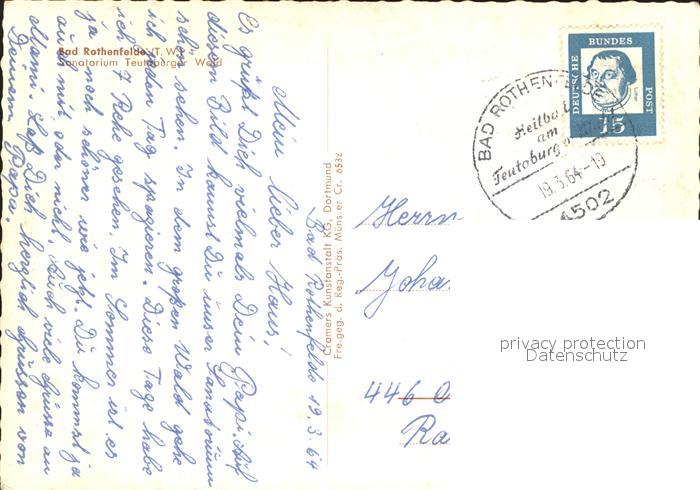 Bad Rothenfelde (T. W.)
Sanatorium Teutoburger Wald
Bad Rothenfelde 19.3.64
Mein lieber Hans!
Es grüßt Dich vielmals Dein Papi. Auf
diesem Bild kannst Du unser Sanatorium
schön sehen. In dem großen Wald gehe
ich jeden Tag spazieren. Diese Tage habe
ich 7 Rehe gesehen. Im Sommer ist es
ja noch schöner wie jetzt. Du kommst ja
auch mit, oder nicht. Auch viele Grüsse an
Mami. Laß Dich herzlich grüssen von
Deinem Papi.
Cramers Kunstanstalt KG, Dortmund
Freigeg. d. Reg.-Präs. Münster Cr. 6532
DEUTSCHE BUNDES POST
15
BAD ROTHENFELDE
Heilbad
am
Teutoburger
19.3.64-19
4502
Herrn
Joha
446
Ra
privacy protection
Datenschutz